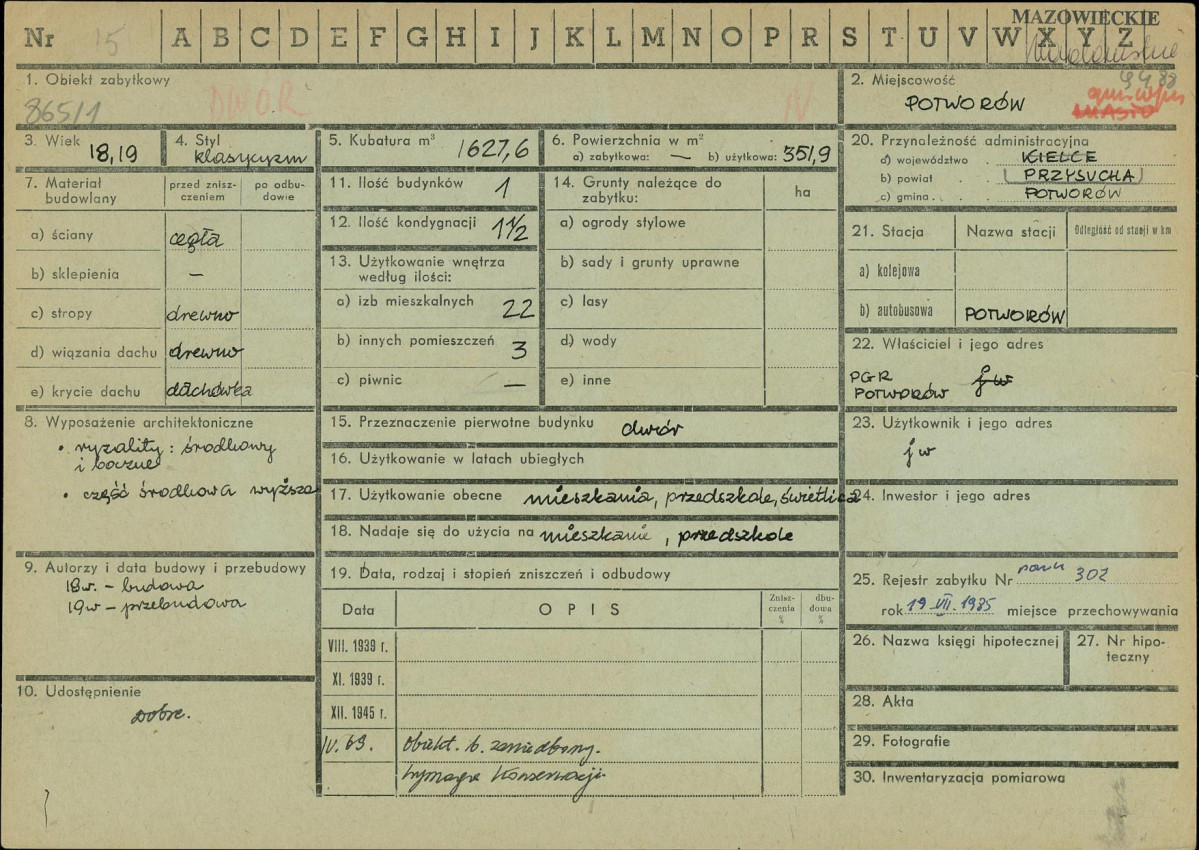 MAZOWIECKIE
Nr 15 A B C D E F G H I J K L M N O P R S T U V W X Y Z
1. Obiekt zabytkowy
865/1 DWÓR IV
2. Miejscowość
POTWORÓW
3. Wiek 18,19
4. Styl klasycyzm
5. Kubatura m³ 1627,6
6. Powierzchnia w m²
a) zabytkowa: — b) użytkowa: 351,9
7. Materiał budowlany
przed zniszczeniem
po odbudowie
a) ściany cegła
b) sklepienia —
c) stropy drewno
d) wiązania dachu drewno
e) krycie dachu dachówka
8. Wyposażenie architektoniczne
• ryzality: środkowy
i boczne
• część środkowa wyższa
9. Autorzy i data budowy i przebudowy
18w. - budowa
19w - przebudowa
10. Udostępnienie
Dobre.
11. Ilość budynków 1
12. Ilość kondygnacji 1½
13. Użytkowanie wnętrza
według ilości:
a) izb mieszkalnych 22
b) innych pomieszczeń 3
c) piwnic —
14. Grunty należące do
zabytku:
ha
a) ogrody stylowe
b) sady i grunty uprawne
c) lasy
d) wody
e) inne
15. Przeznaczenie pierwotne budynku dwór
16. Użytkowanie w latach ubiegłych
17. Użytkowanie obecne mieszkania, przedszkole, świetlica
18. Nadaje się do użycia na mieszkanie, przedszkole
19. Data, rodzaj i stopień zniszczeń i odbudowy
Data OPIS Zniszczenia % dbudowa %
VIII. 1939 r.
XI. 1939 r.
XII. 1945 r.
IV. 69. Obiekt. b. zaniedbany.
Wymaga Konserwacji
20. Przynależność administracyjna
a) województwo KIELCE
b) powiat (PRZYSUCHA)
c) gmina POTWORÓW
21. Stacja Nazwa stacji Odległość od stacji w km
a) kolejowa
b) autobusowa POTWORÓW
22. Właściciel i jego adres
PGR jw
POTWORÓW
23. Użytkownik i jego adres
jw
24. Inwestor i jego adres
25. Rejestr zabytku Nr 302
rok 19 VII. 1985 miejsce przechowywania
26. Nazwa księgi hipotecznej
27. Nr hipoteczny
28. Akta
29. Fotografie
30. Inwentaryzacja pomiarowa